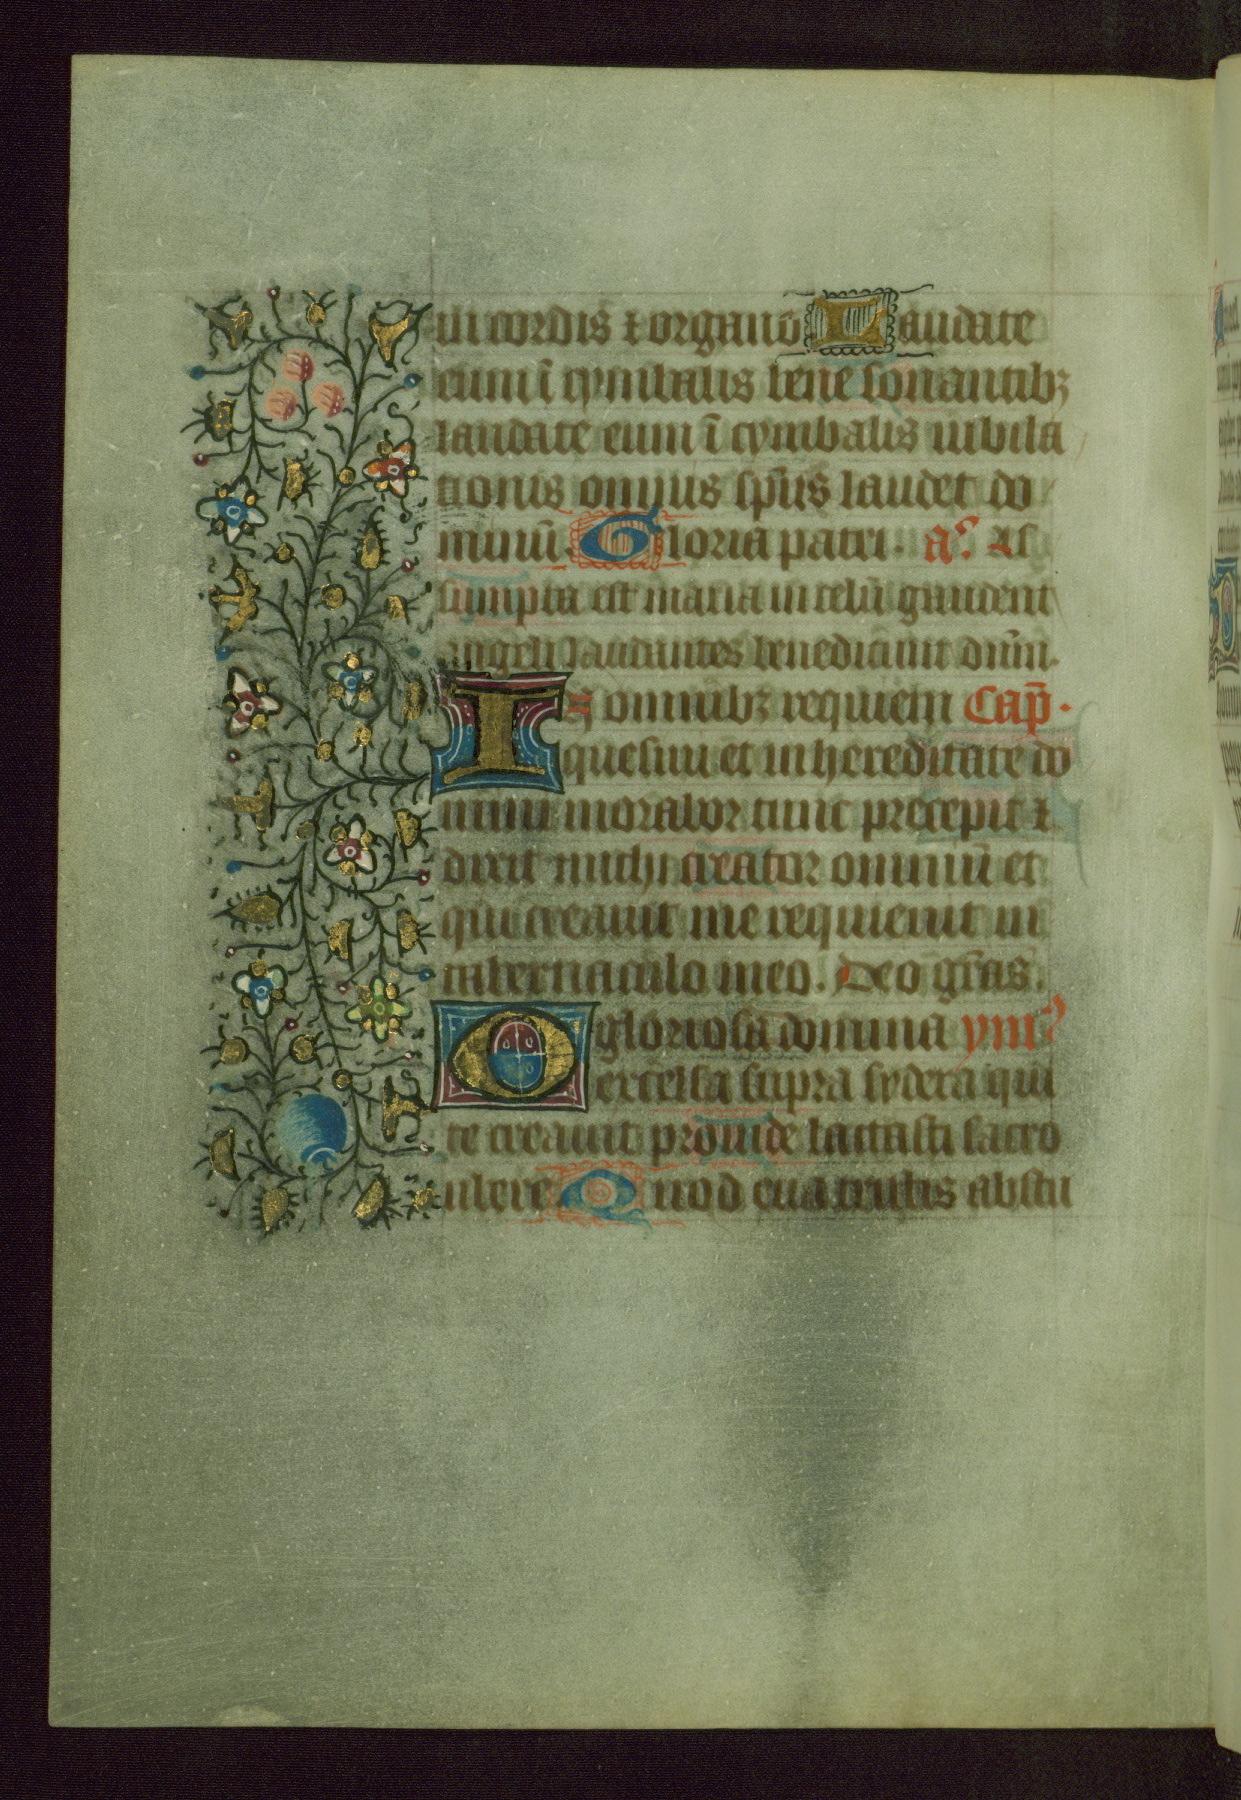 in cordis ⁊ organo Laudate
eum ī cymbalis bene sonantibꝫ
laudate eum ī cymbalis iubila
tionis omnis sp̄us laudet do
minū. Gloria patri. a᷒. As
sumpta est maria in celū gaudent
angeli laudantes benedicūt dnm̄.
In omnibꝫ requiem Cap̄.
quesiui et in hereditate do
mini morabor tunc precepit ⁊
dixit michi creator omniū et
qui creauit me requieuit in
tabernaculo meo. Deo grās.
O gloriosa domina ym᷒
excelsa supra sydera qui
te creauit prouide lactasti sacro
ubere Quod eua tristis abstu